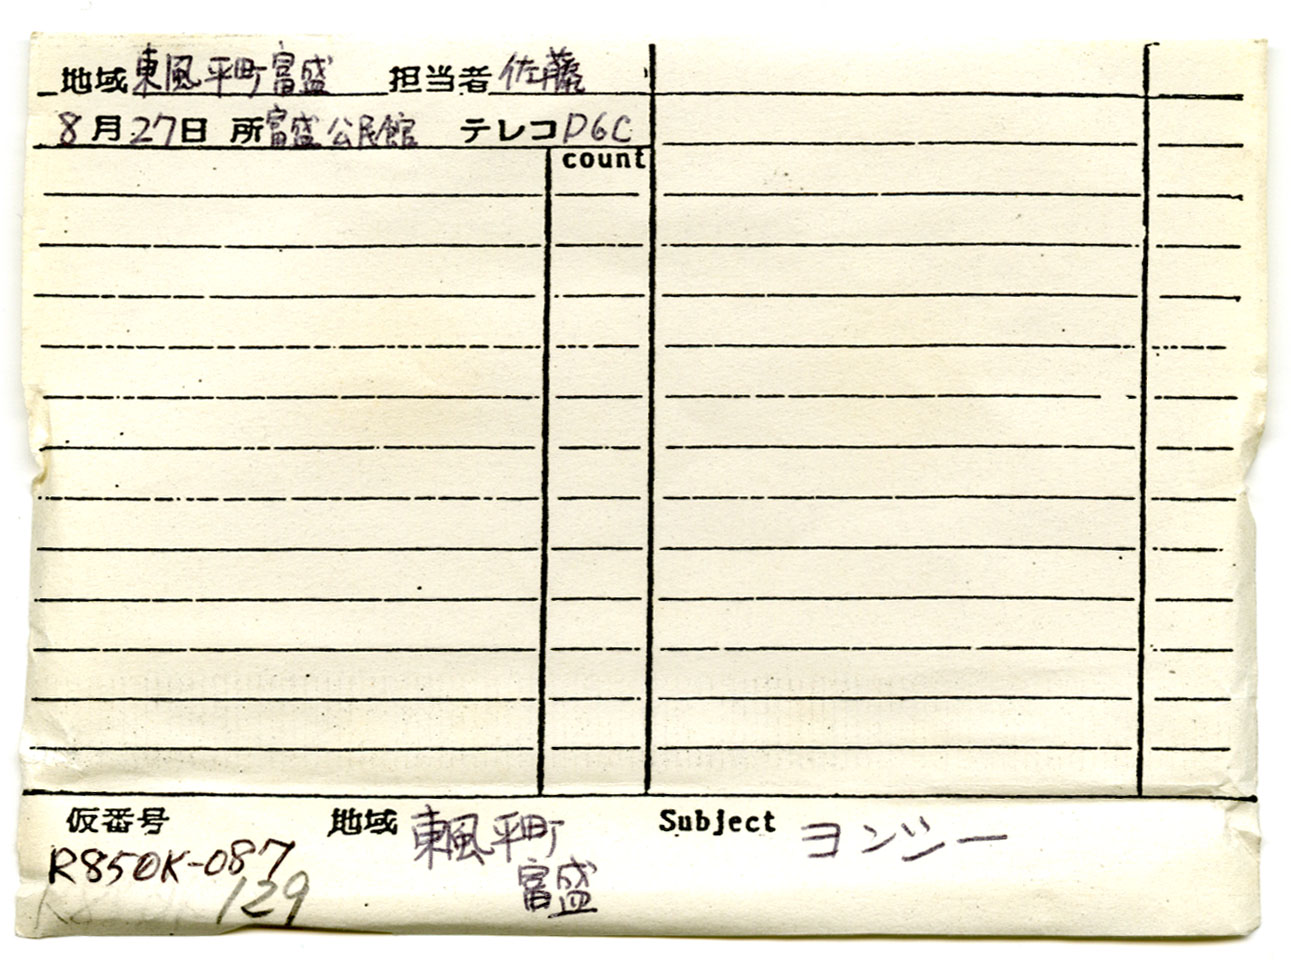 地域 東風平町富盛 担当者 佐藤
8月27日 所 富盛公民館 テレコ D6C
count
仮番号 地域 東風平町 Subject ヨンシー
富盛
R850K-087
129